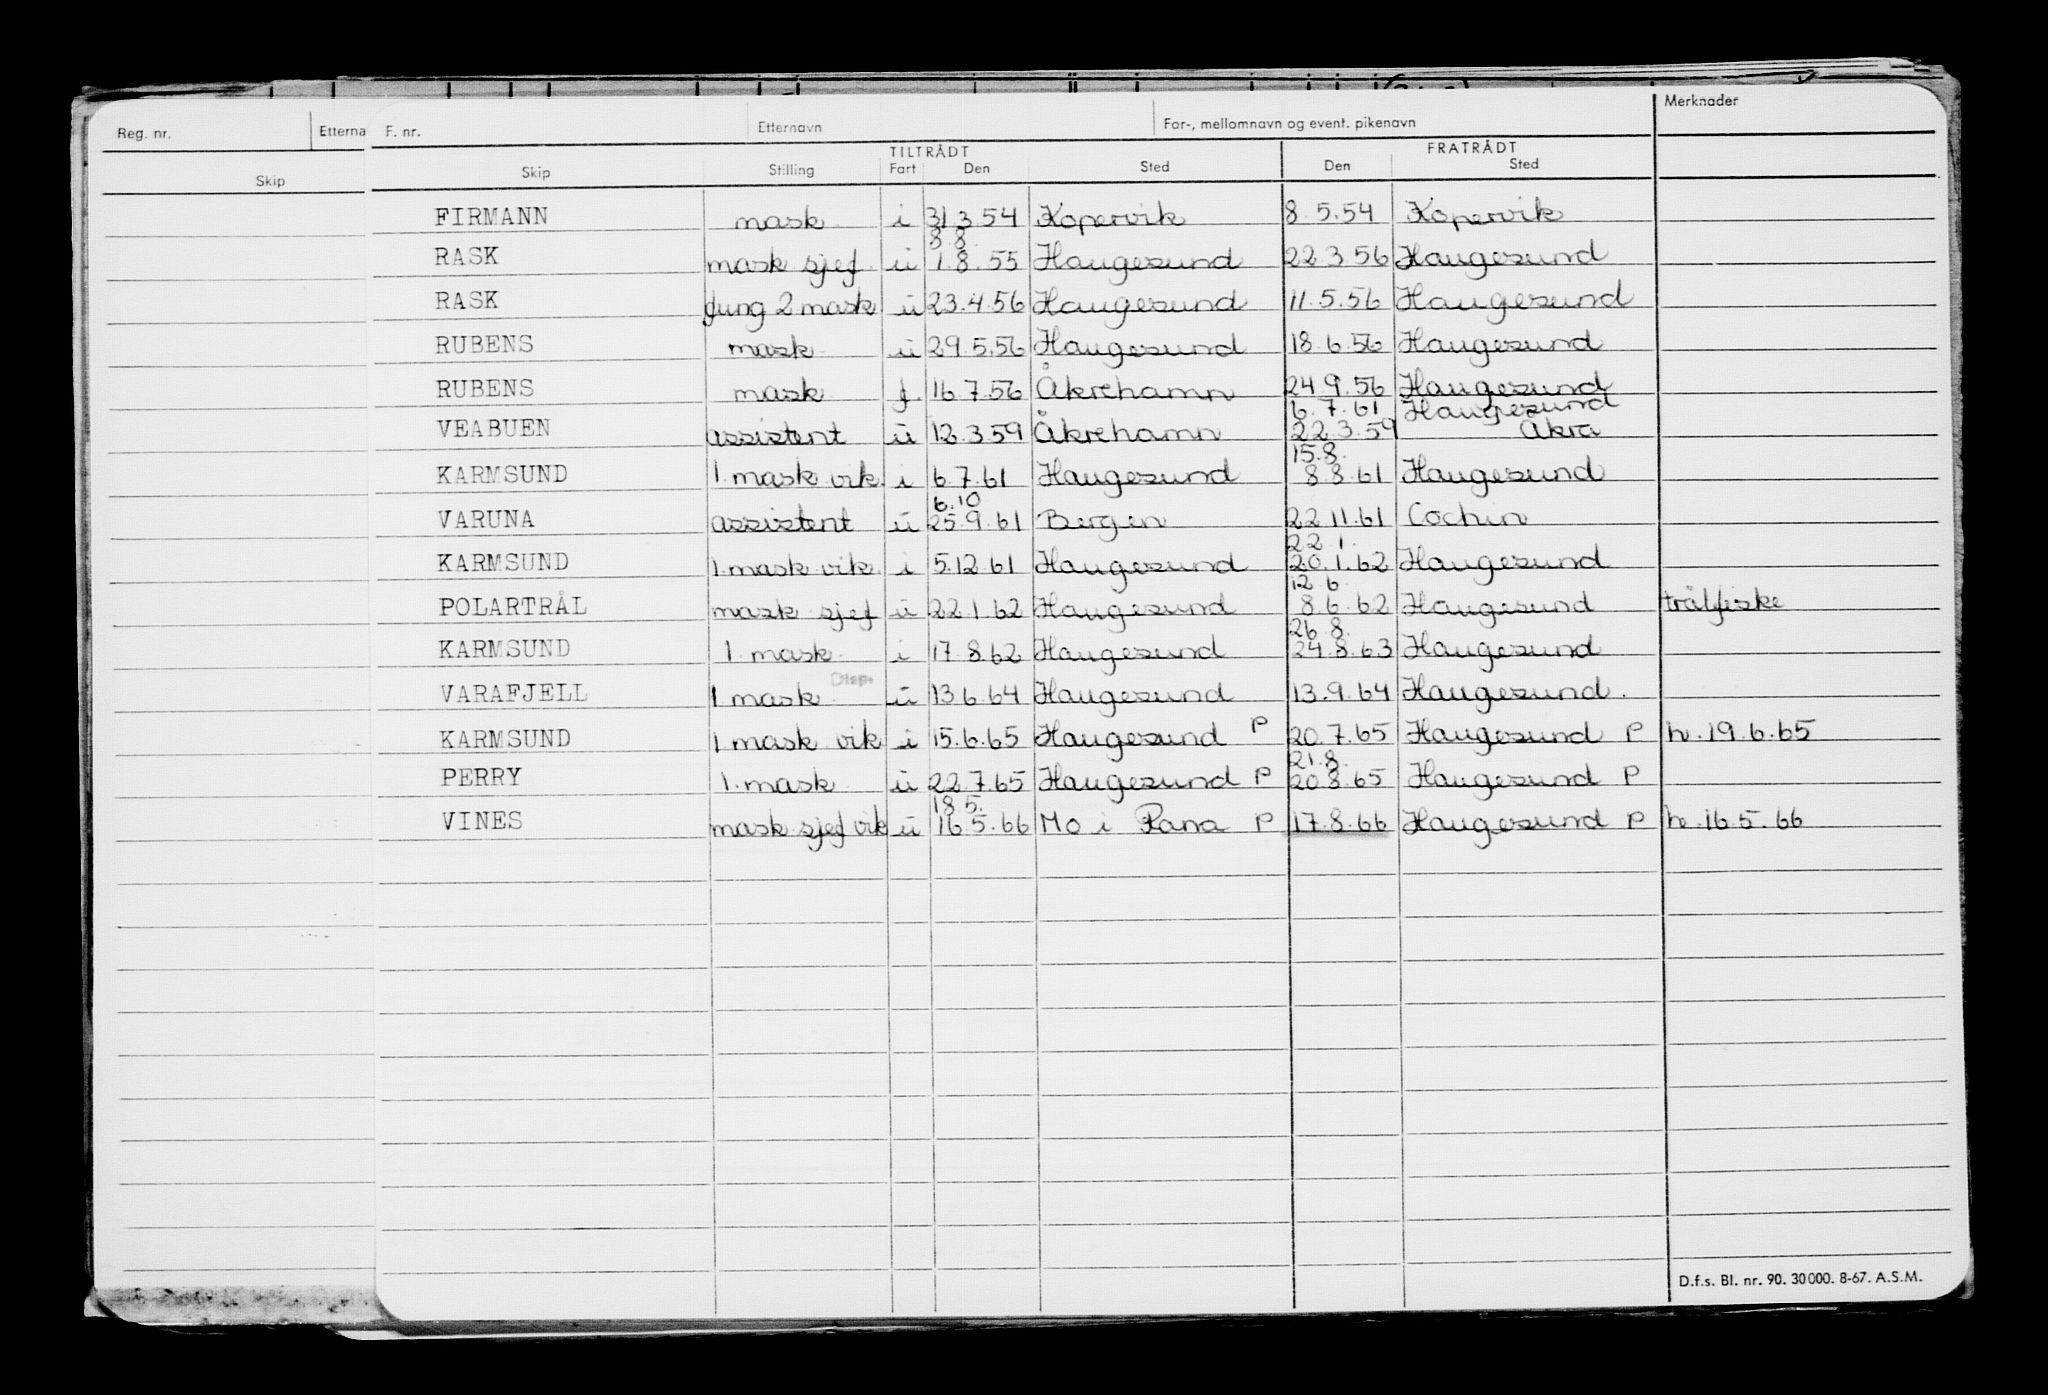 Merknader
Reg. nr. Etterna F. nr. Etternavn For-, mellomnavn og event. pikenavn
TILTRÅDT FRATRÅDT
Skip Skip Stilling Fart Den Sted Den Sted
FIRMANN mask i 31.3.54 Kopervik 8.5.54 Kopervik
8.8.
RASK mask sjef u 1.8.55 Haugesund 22.3.56 Haugesund
RASK fung 2 mask u 23.4.56 Haugesund 11.5.56 Haugesund
RUBENS mask u 29.5.56 Haugesund 18.6.56 Haugesund
RUBENS mask f. 16.7.56 Åkrehamn 24.9.56 Haugesund
6.7.61 Haugesund
VEABUEN assistent u 12.3.59 Åkrehamn 22.3.59 Åkra
15.8.
KARMSUND 1. mask vik. i 6.7.61 Haugesund 8.8.61 Haugesund
6.10
VARUNA assistent u 25.9.61 Bergen 22.11.61 Cochin
22.1.
KARMSUND 1. mask vik. i 5.12.61 Haugesund 20.1.62 Haugesund
12.6.
POLARTRÅL mask sjef u 22.1.62 Haugesund 8.6.62 Haugesund trålfiske
26.8.
KARMSUND 1. mask. i 17.8.62 Haugesund 24.8.63 Haugesund
Disp.
VARAFJELL 1 mask. u 13.6.64 Haugesund 13.9.64 Haugesund.
KARMSUND 1 mask vik i 15.6.65 Haugesund P 20.7.65 Haugesund P h. 19.6.65
21.8.
PERRY 1. mask u 22.7.65 Haugesund P 20.8.65 Haugesund P
18.5.
VINES mask sjef vik u 16.5.66 Mo i Rana P 17.8.66 Haugesund P h. 16.5.66
D.f.s. Bl. nr. 90. 30 000. 8-67. A.S.M.